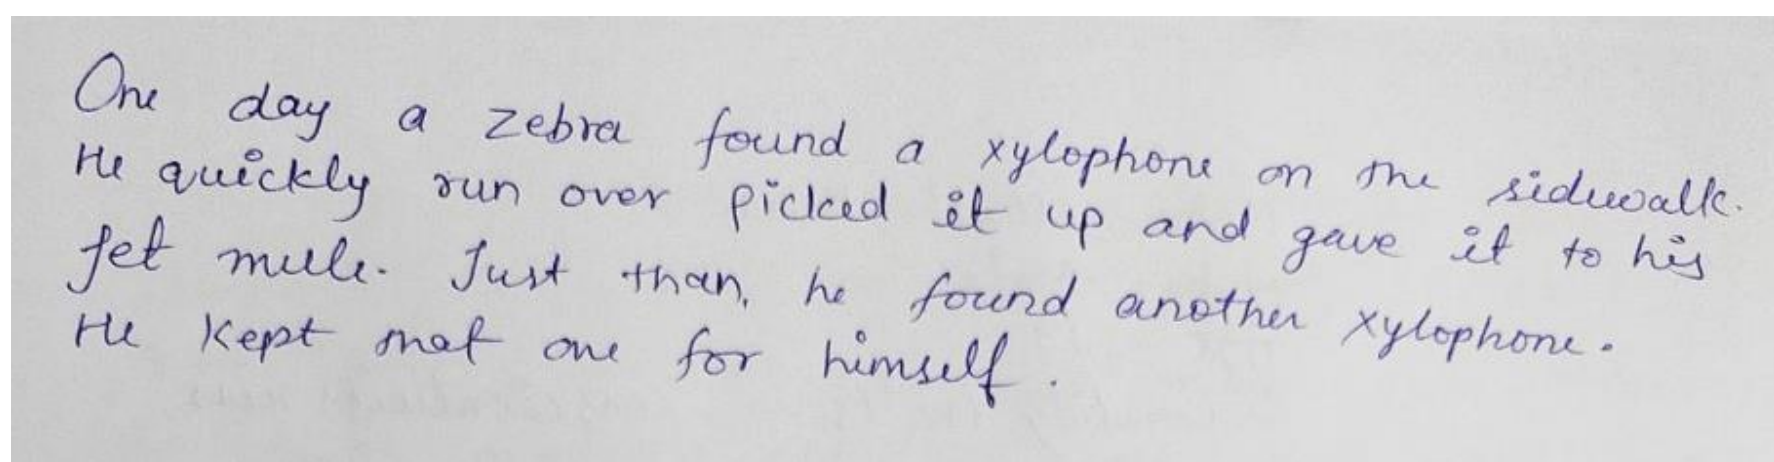 One day a zebra found a xylophone on the sidewalk.
He quickly run over picked it up and gave it to his
pet mule. Just than, he found another xylophone.
He kept that one for himself.